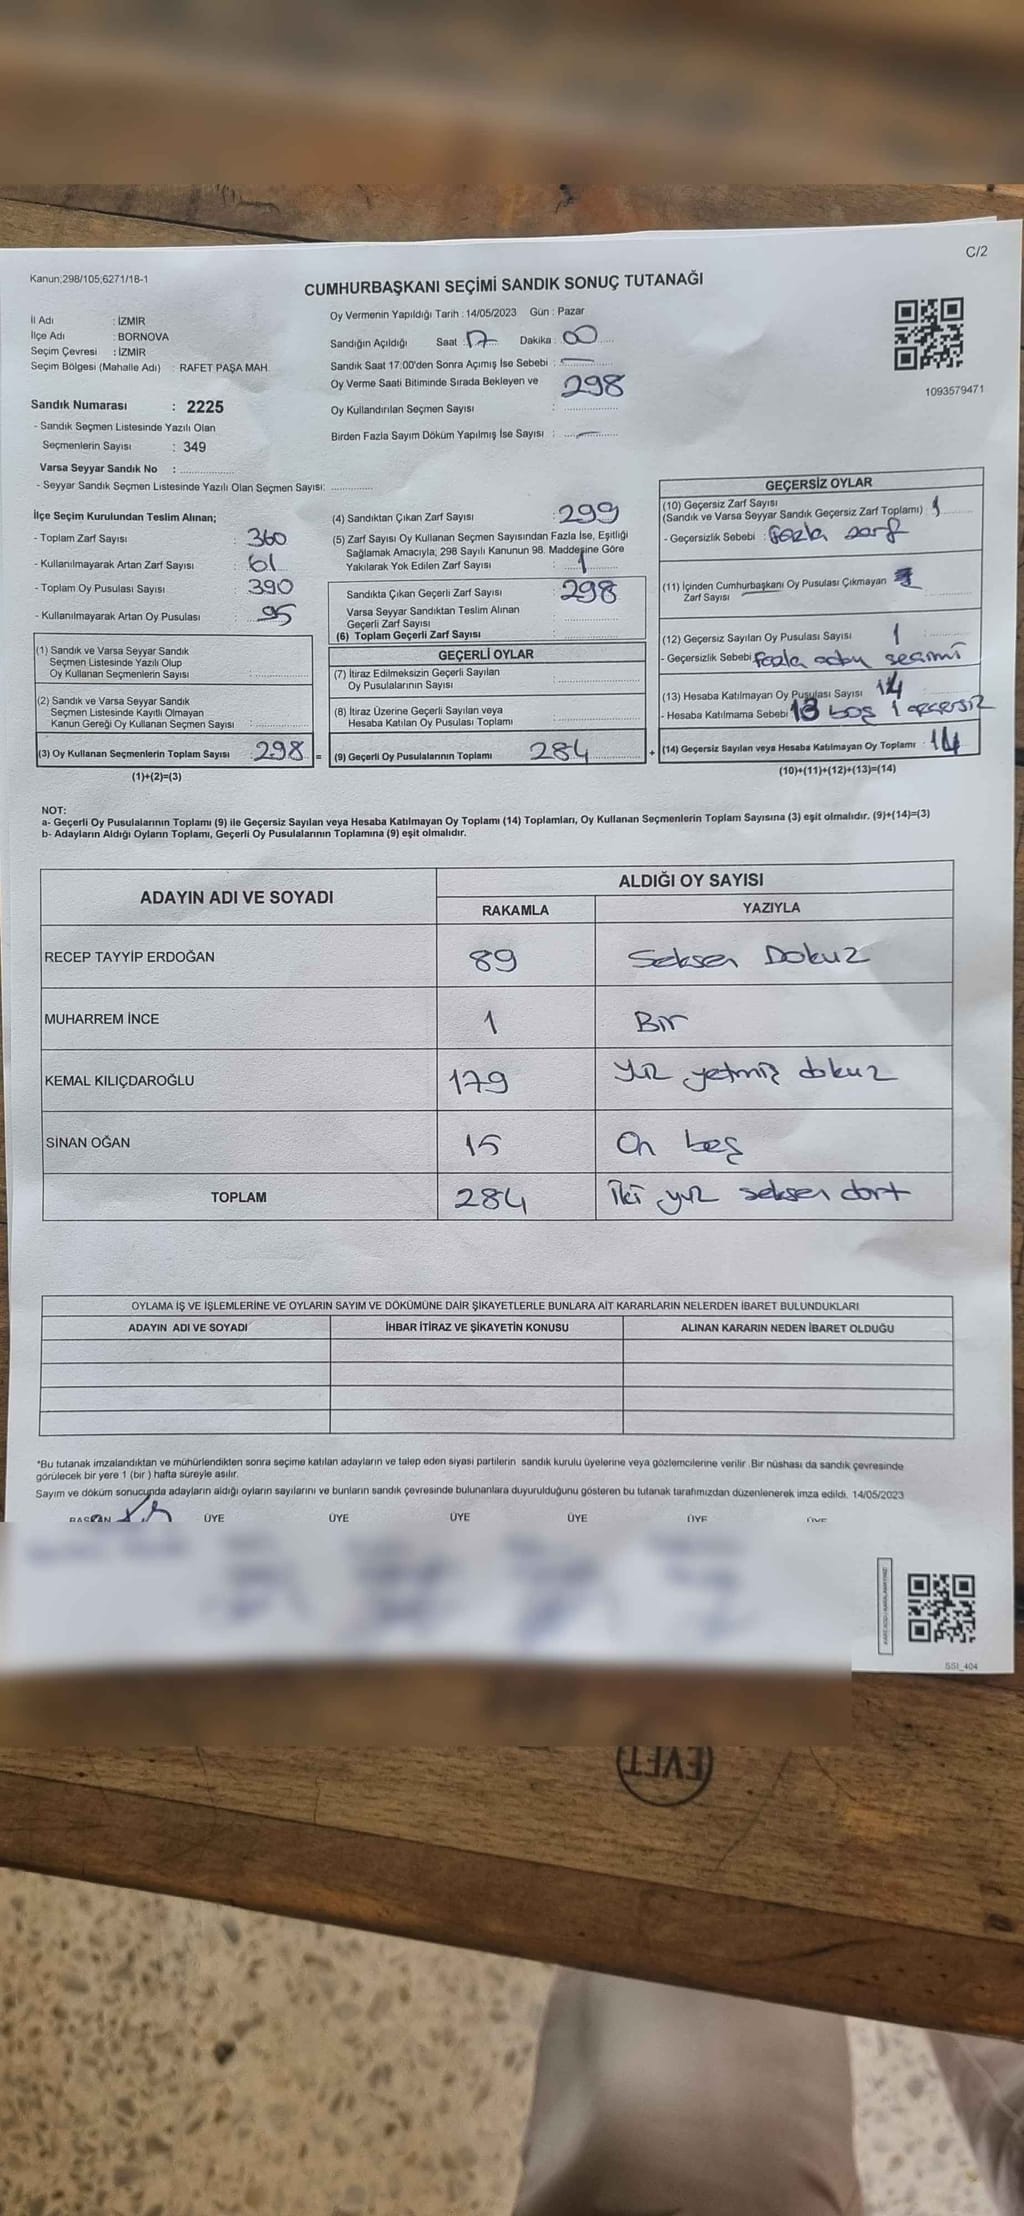 C/2
Kanun;298/105;6271/18-1
CUMHURBAŞKANI SEÇİMİ SANDIK SONUÇ TUTANAĞI
İl Adı : İZMİR
İlçe Adı : BORNOVA
Seçim Çevresi : İZMİR
Seçim Bölgesi (Mahalle Adı) : RAFET PAŞA MAH.
Sandık Numarası : 2225
- Sandık Seçmen Listesinde Yazılı Olan
Seçmenlerin Sayısı : 349
Varsa Seyyar Sandık No : ..................
- Seyyar Sandık Seçmen Listesinde Yazılı Olan Seçmen Sayısı: ..............
Oy Vermenin Yapıldığı Tarih : 14/05/2023 Gün : Pazar
Sandığın Açıldığı Saat : 17 Dakika : 00
Sandık Saat 17:00'den Sonra Açımış İse Sebebi : —
Oy Verme Saati Bitiminde Sırada Bekleyen ve 298
Oy Kullandırılan Seçmen Sayısı :
Birden Fazla Sayım Döküm Yapılmış İse Sayısı : —
1093579471
İlçe Seçim Kurulundan Teslim Alınan;
- Toplam Zarf Sayısı : 360
- Kullanılmayarak Artan Zarf Sayısı : 61
- Toplam Oy Pusulası Sayısı : 390
- Kullanılmayarak Artan Oy Pusulası : 95
(1) Sandık ve Varsa Seyyar Sandık
Seçmen Listesinde Yazılı Olup
Oy Kullanan Seçmenlerin Sayısı :
(2) Sandık ve Varsa Seyyar Sandık
Seçmen Listesinde Kayıtlı Olmayan
Kanun Gereği Oy Kullanan Seçmen Sayısı :
(3) Oy Kullanan Seçmenlerin Toplam Sayısı : 298 =
(1)+(2)=(3)
(4) Sandıktan Çıkan Zarf Sayısı : 299
(5) Zarf Sayısı Oy Kullanan Seçmen Sayısından Fazla İse, Eşitliği
Sağlamak Amacıyla, 298 Sayılı Kanunun 98. Maddesine Göre
Yakılarak Yok Edilen Zarf Sayısı : 1
Sandıkta Çıkan Geçerli Zarf Sayısı : 298
Varsa Seyyar Sandıktan Teslim Alınan
Geçerli Zarf Sayısı :
(6) Toplam Geçerli Zarf Sayısı :
GEÇERLİ OYLAR
(7) İtiraz Edilmeksizin Geçerli Sayılan
Oy Pusulalarının Sayısı :
(8) İtiraz Üzerine Geçerli Sayılan veya
Hesaba Katılan Oy Pusulası Toplamı :
(9) Geçerli Oy Pusulalarının Toplamı 284 +
GEÇERSİZ OYLAR
(10) Geçersiz Zarf Sayısı
(Sandık ve Varsa Seyyar Sandık Geçersiz Zarf Toplamı) : 1
- Geçersizlik Sebebi : Fazla zarf
(11) İçinden Cumhurbaşkanı Oy Pusulası Çıkmayan
Zarf Sayısı
(12) Geçersiz Sayılan Oy Pusulası Sayısı : 1
- Geçersizlik Sebebi Fazla aday seçimi
(13) Hesaba Katılmayan Oy Pusulası Sayısı 14
- Hesaba Katılmama Sebebi 13 boş 1 geçersiz
(14) Geçersiz Sayılan veya Hesaba Katılmayan Oy Toplamı : 14
(10)+(11)+(12)+(13)=(14)
NOT:
a- Geçerli Oy Pusulalarının Toplamı (9) ile Geçersiz Sayılan veya Hesaba Katılmayan Oy Toplamı (14) Toplamları, Oy Kullanan Seçmenlerin Toplam Sayısına (3) eşit olmalıdır. (9)+(14)=(3)
b- Adayların Aldığı Oyların Toplamı, Geçerli Oy Pusulalarının Toplamına (9) eşit olmalıdır.
ADAYIN ADI VE SOYADI ALDIĞI OY SAYISI
RAKAMLA YAZIYLA
RECEP TAYYİP ERDOĞAN 89 Seksen Dokuz
MUHARREM İNCE 1 Bir
KEMAL KILIÇDAROĞLU 179 Yüz yetmiş dokuz
SİNAN OĞAN 15 On beş
TOPLAM 284 İki yüz seksen dört
OYLAMA İŞ VE İŞLEMLERİNE VE OYLARIN SAYIM VE DÖKÜMÜNE DAİR ŞİKAYETLERLE BUNLARA AİT KARARLARIN NELERDEN İBARET BULUNDUKLARI
ADAYIN ADI VE SOYADI İHBAR İTİRAZ VE ŞİKAYETİN KONUSU ALINAN KARARIN NEDEN İBARET OLDUĞU
*Bu tutanak imzalandıktan ve mühürlendikten sonra seçime katılan adayların ve talep eden siyasi partilerin sandık kurulu üyelerine veya gözlemcilerine verilir .Bir nüshası da sandık çevresinde
görülecek bir yere 1 (bir ) hafta süreyle asılır.
Sayım ve döküm sonucunda adayların aldığı oyların sayılarını ve bunların sandık çevresinde bulunanlara duyurulduğunu gösteren bu tutanak tarafımızdan düzenlenerek imza edildi. 14/05/2023
BAŞKAN ÜYE ÜYE ÜYE ÜYE ÜYE ÜYE
SSI_404
EVET